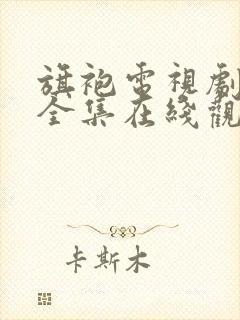 旗袍電視劇
全集在綫觀
卡斯木